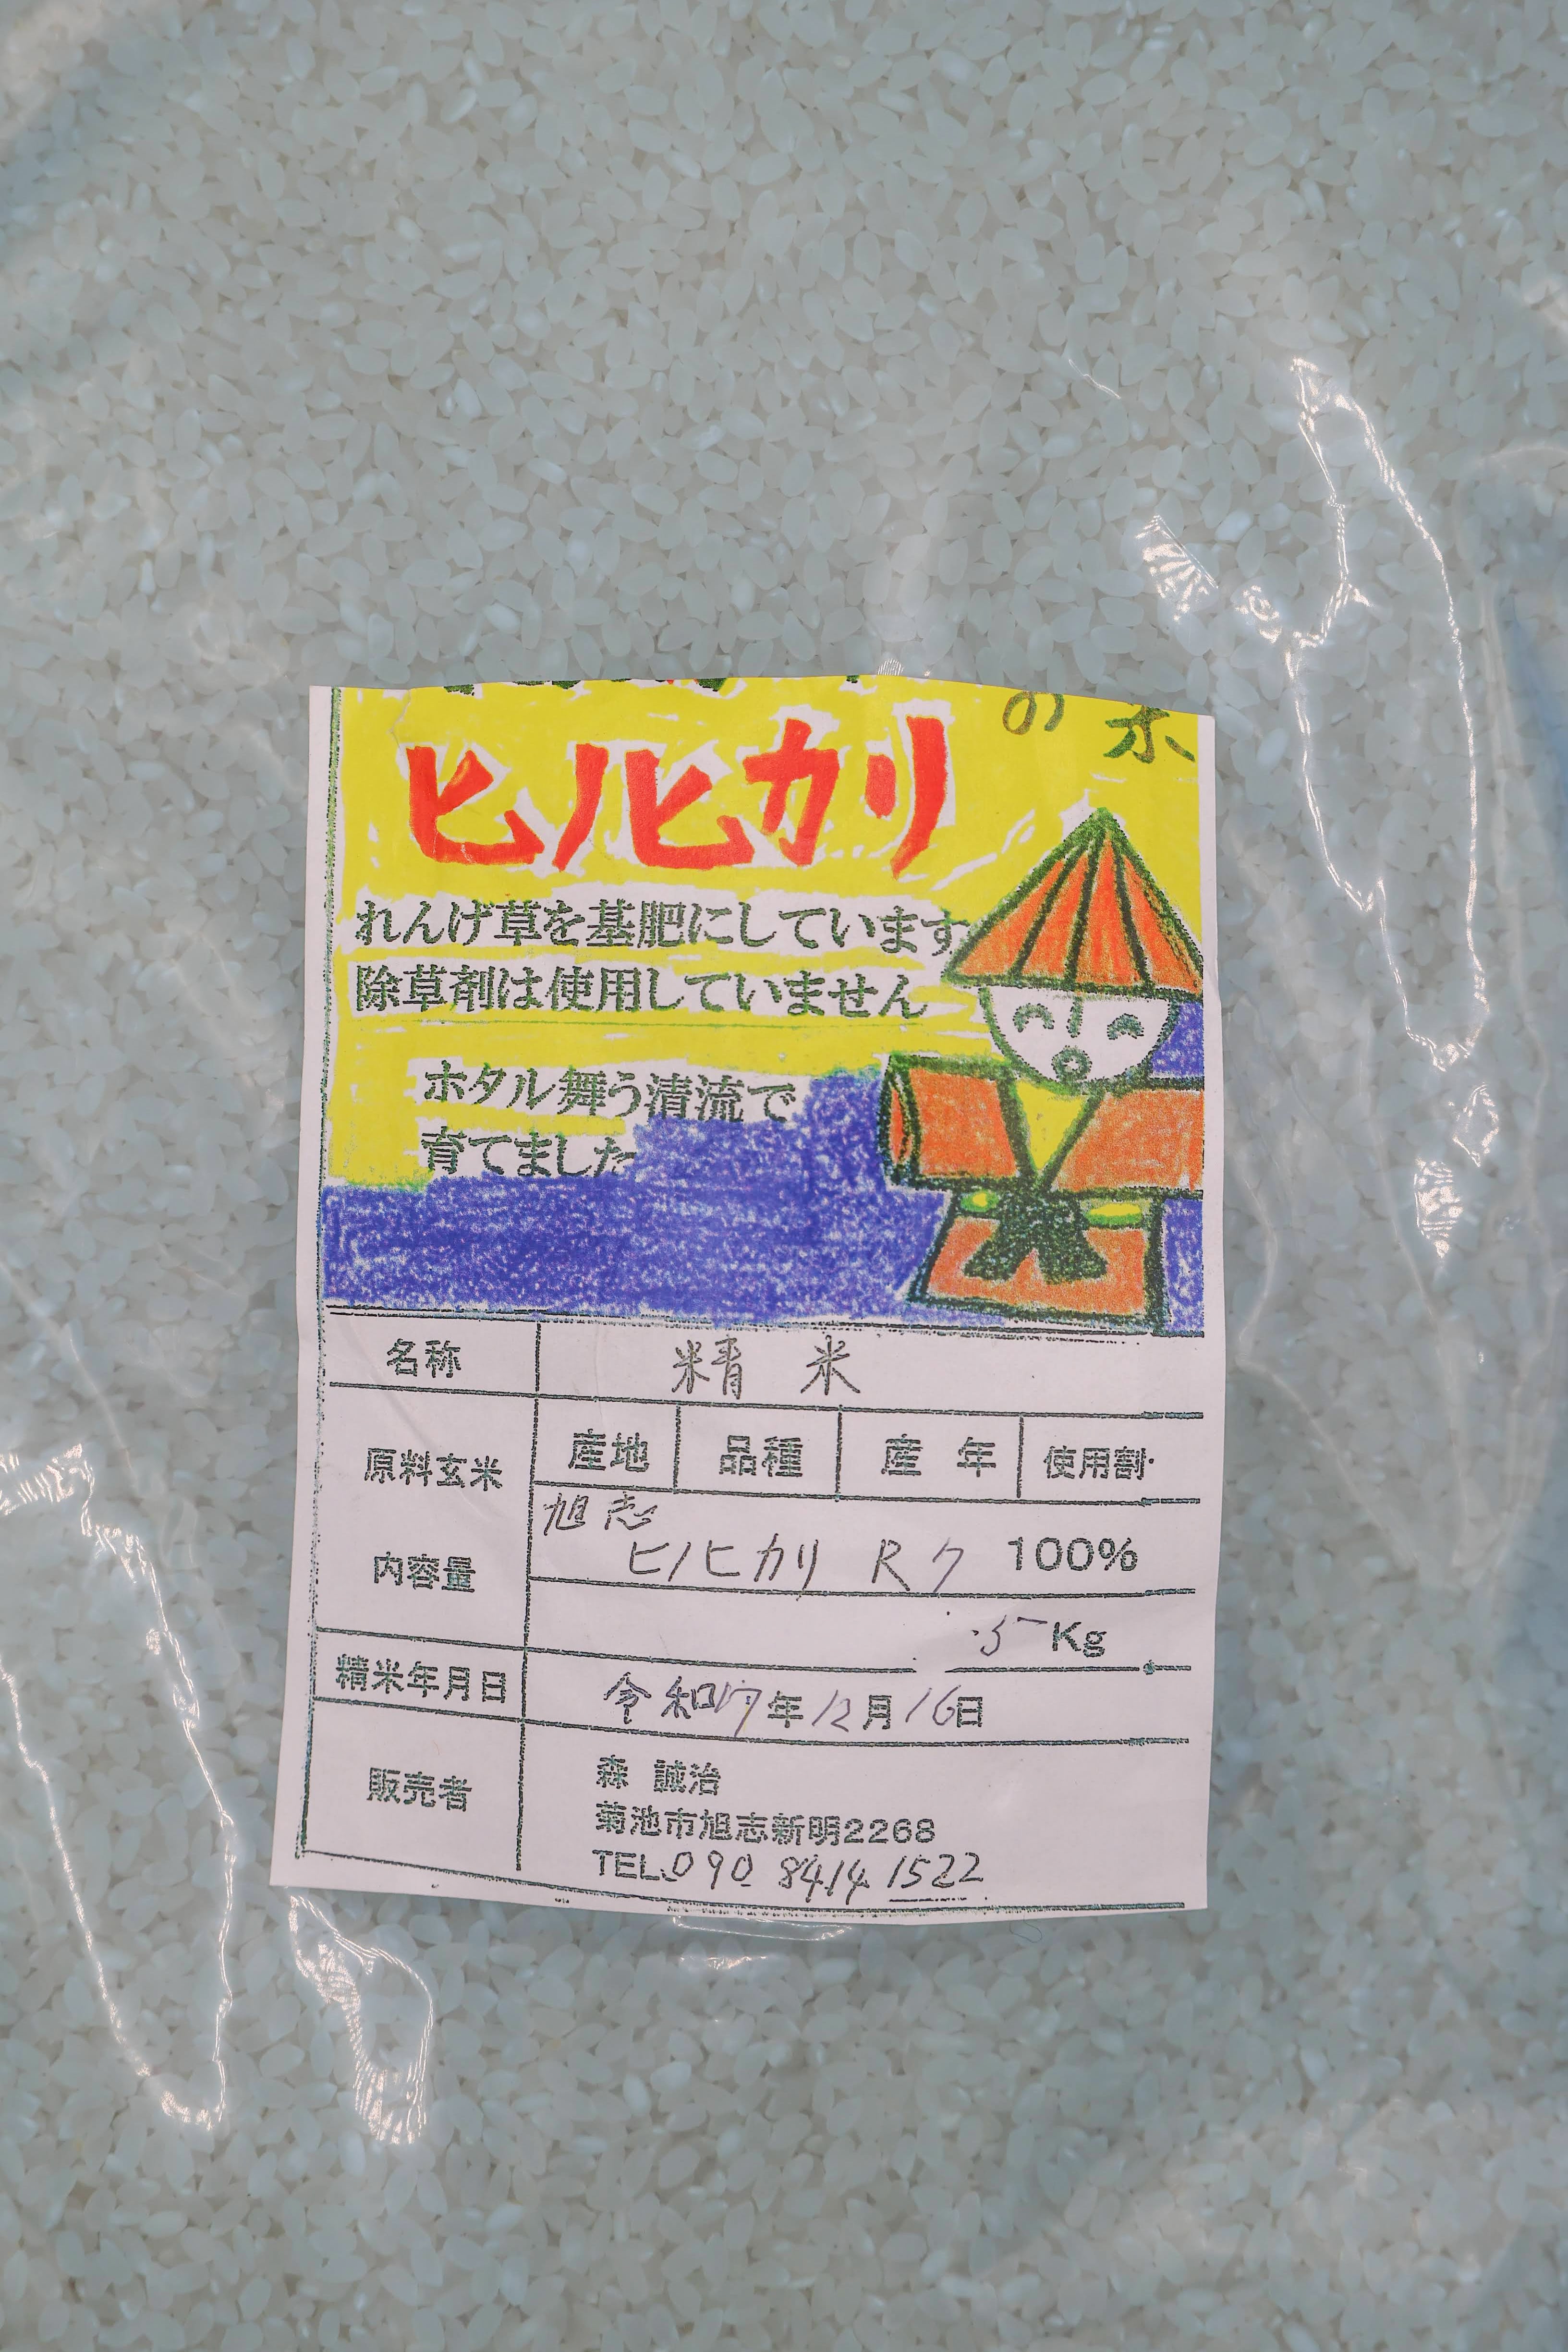 の米
ヒノヒカリ
れんげ草を基肥にしています
除草剤は使用していません
ホタル舞う清流で
育てました
名称 精米
原料玄米 産地 品種 産年 使用割
旭志
ヒノヒカリ R7 100%
内容量 5Kg
精米年月日 令和7年12月16日
販売者 森 誠治
菊池市旭志新明2268
TEL 090 8414 1522